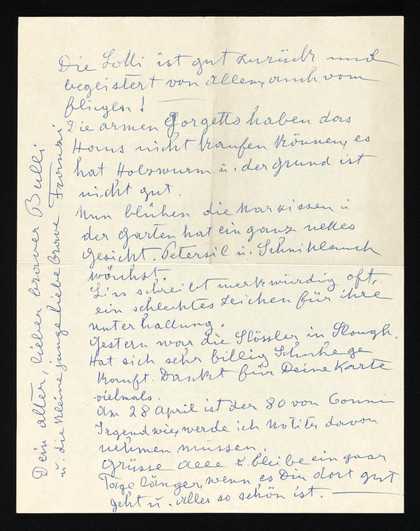 Die Lotti ist gut zurück und
begeistert von allem, auch vom
fliegen!
Die armen Gorgetts haben das
Haus nicht kaufen können, es
hat Holzwurm u. der Grund ist
nicht gut.
Nun blühen die Narzissen u
der Garten hat ein ganz nettes
Gesicht. Petersil u. Schnittlauch
wächst.
schreibt merkwürdig oft,
ein schlechtes Zeichen für ihre
unterhaltung.
Gestern war die Slössler in Slough.
Hat sich sehr billig
kauft. Dankt für Deine Karte
vielmals.
Am 28 April ist der 80 von Conni
Irgendwie werde ich Notitz davon
nehmen müssen.
Grüsse alle & bleibe ein paar
Tage länger, wenn es Dir dort gut
geht u. alles so schön ist.
Dein alter, lieber braver Bulli
u. die kleine junge liebe brave